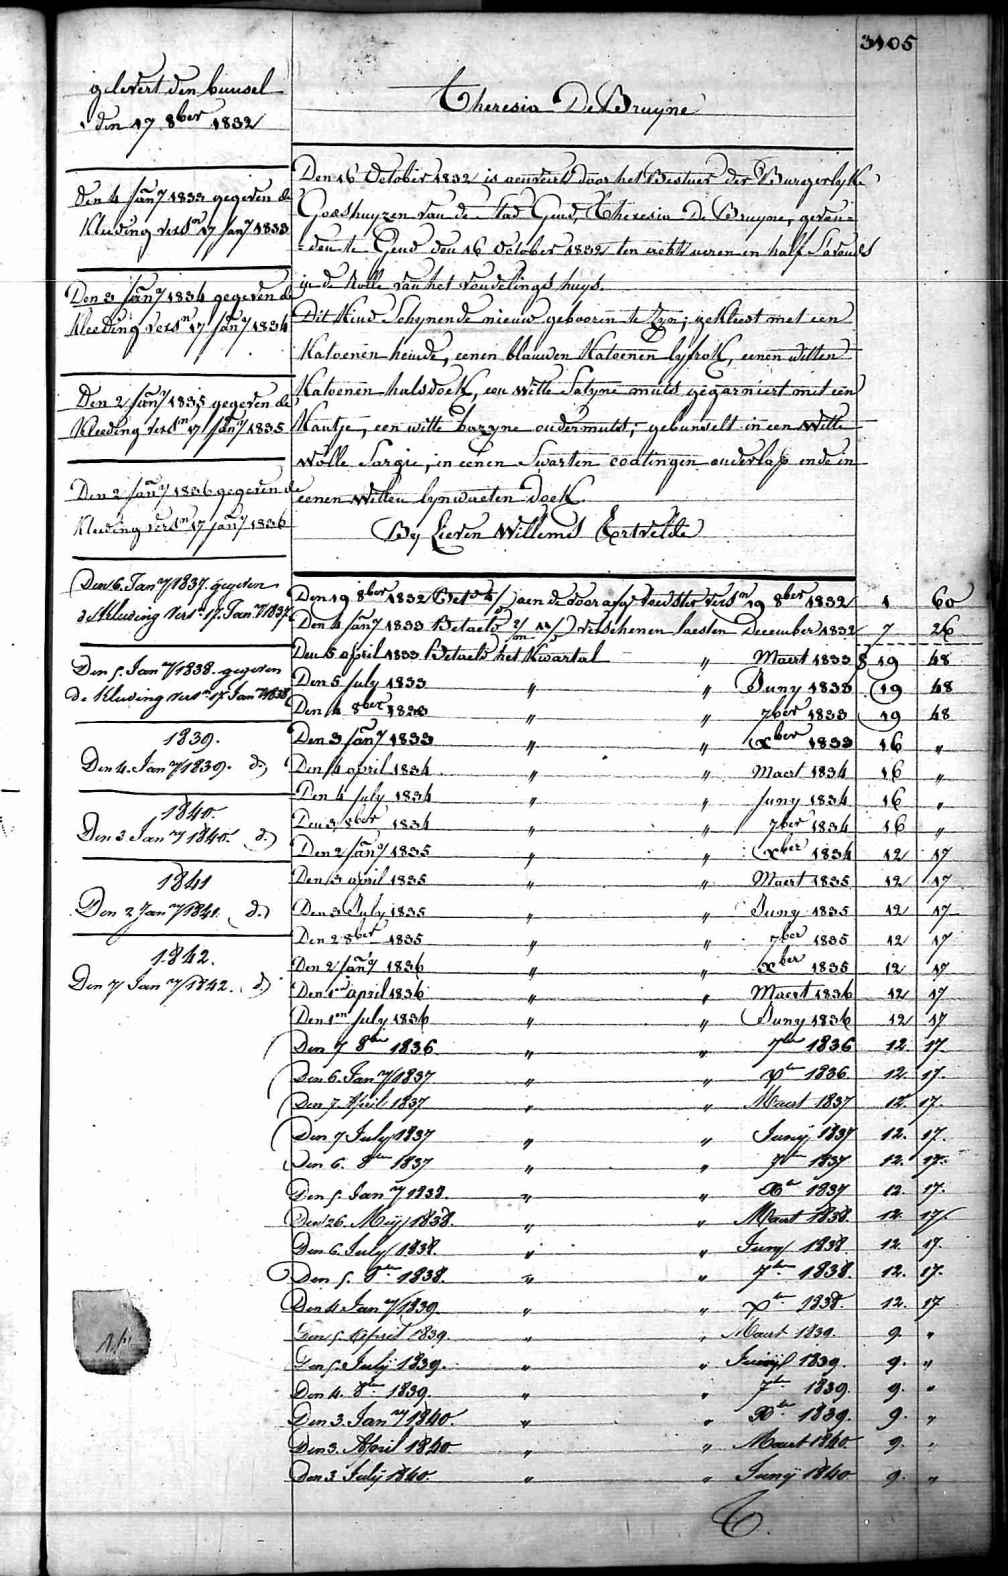 3405
gelevert den bunsel
den 17 8ber 1832
Theresia De Bruyne
Den 16 October 1832 is aenveerd door het Bestuer der Burgerlyke
Godshuyzen van de Stad Gend, Theresia De Bruyne, gevon=
=den te Gend den 16 October 1832 ten acht uren en half Savonds
in de Rolle van het vondelings huys.
Dit Kind Schynende nieuw gebooren te Zyn; gekleed met een
Katoenen hemde, eenen blauwen Katoenen lyfrok, eenen witten
Katoenen halsdoek, een witte Satyne muts gegarniert met een
Kantje, een witte bazyne ondermuts, gebunselt in een Witte
Wolle Sargie, in eenen Swarten coatingen onderlap ende in
eenen Witten lynwaeten doek.
By Lieven Willems Ertvelde
Den 4 Jany 1833 gegeven de
Kleeding versn 17 Jany 1833
Den 3 Jany 1834 gegeven de
Kleeding versn 17 Jany 1834
Den 2 Jany 1835 gegeven de
Kleeding versn 17 Jany 1835
Den 2 Jany 1836 gegeven de
Kleeding versn 17 Jany 1836
Den 6. Jany 1837. gegeven
de kleeding versn. 17. Jany 1837
Den 5. Jany 1838. gegeven
de Kleeding versn. 17 Jany 1838
1839.
Den 4. Jany 1839. do)
1840.
Den 3 Jany 1840. do)
1841
Den 2 Jany 1841. do)
1842.
Den 7 Jany 1842. do)
Den 19 8ber 1832 aen de voedster versn 19 8ber 1832 1 60
Den 4 Jany 1833 Betaeld verschenen laesten December 1832 7 26
Den 5 april 1833 Betaeld het Kwartal " Maert 1833 19 48
Den 5 July 1833 " " Juny 1833 19 48
Den 4 8ber 1833 " " 7ber 1833 19 48
Den 3 Jany 1833 " " xber 1833 16 "
Den 4 april 1834 " " Maert 1834 16 "
Den 4 July 1834 " " Juny 1834 16 "
Den 3 8ber 1834 " " 7ber 1834 16 "
Den 2 Jany 1835 " " xber 1834 12 17
Den 3 april 1835 " " Maert 1835 12 17
Den 3 July 1835 " " Juny 1835 12 17
Den 2 8ber 1835 " " 7ber 1835 12 17
Den 2 Jany 1836 " " xber 1835 12 17
Den 1en april 1836 " " Maert 1836 12 17
Den 1en July 1836 " " Juny 1836 12 17
Den 7 8ber 1836 " " 7ber 1836 12. 17.
Den 6. Jany 1837 " " xber 1836. 12. 17.
Den 7. April 1837 " " Maert 1837 12. 17.
Den 7 July 1837 " " Junij 1837 12. 17.
Den 6. 8ber 1837 " " 7ber 1837 12. 17.
Den 5. Jany 1838. " " Xber 1837 12. 17.
Den 26. Meij 1838. " " Maert 1838. 12. 17.
Den 6. July 1838. " " Juny 1838 12. 17.
Den 5. 8ber 1838. " " 7ber 1838. 12. 17.
Den 4 Jany 1839. " " xber 1838. 12. 17
Den 5. April 1839. " " Maert 1839. 9. "
Den 5. Julij 1839. " " Junij 1839. 9. "
Den 4. 8ber 1839. " " 7ber 1839. 9. "
Den 3. Jany 1840. " " Xber 1839. 9. "
Den 3. April 1840 " " Maert 1840. 9. "
Den 3 Julij 1840 " " Junij 1840 9. "